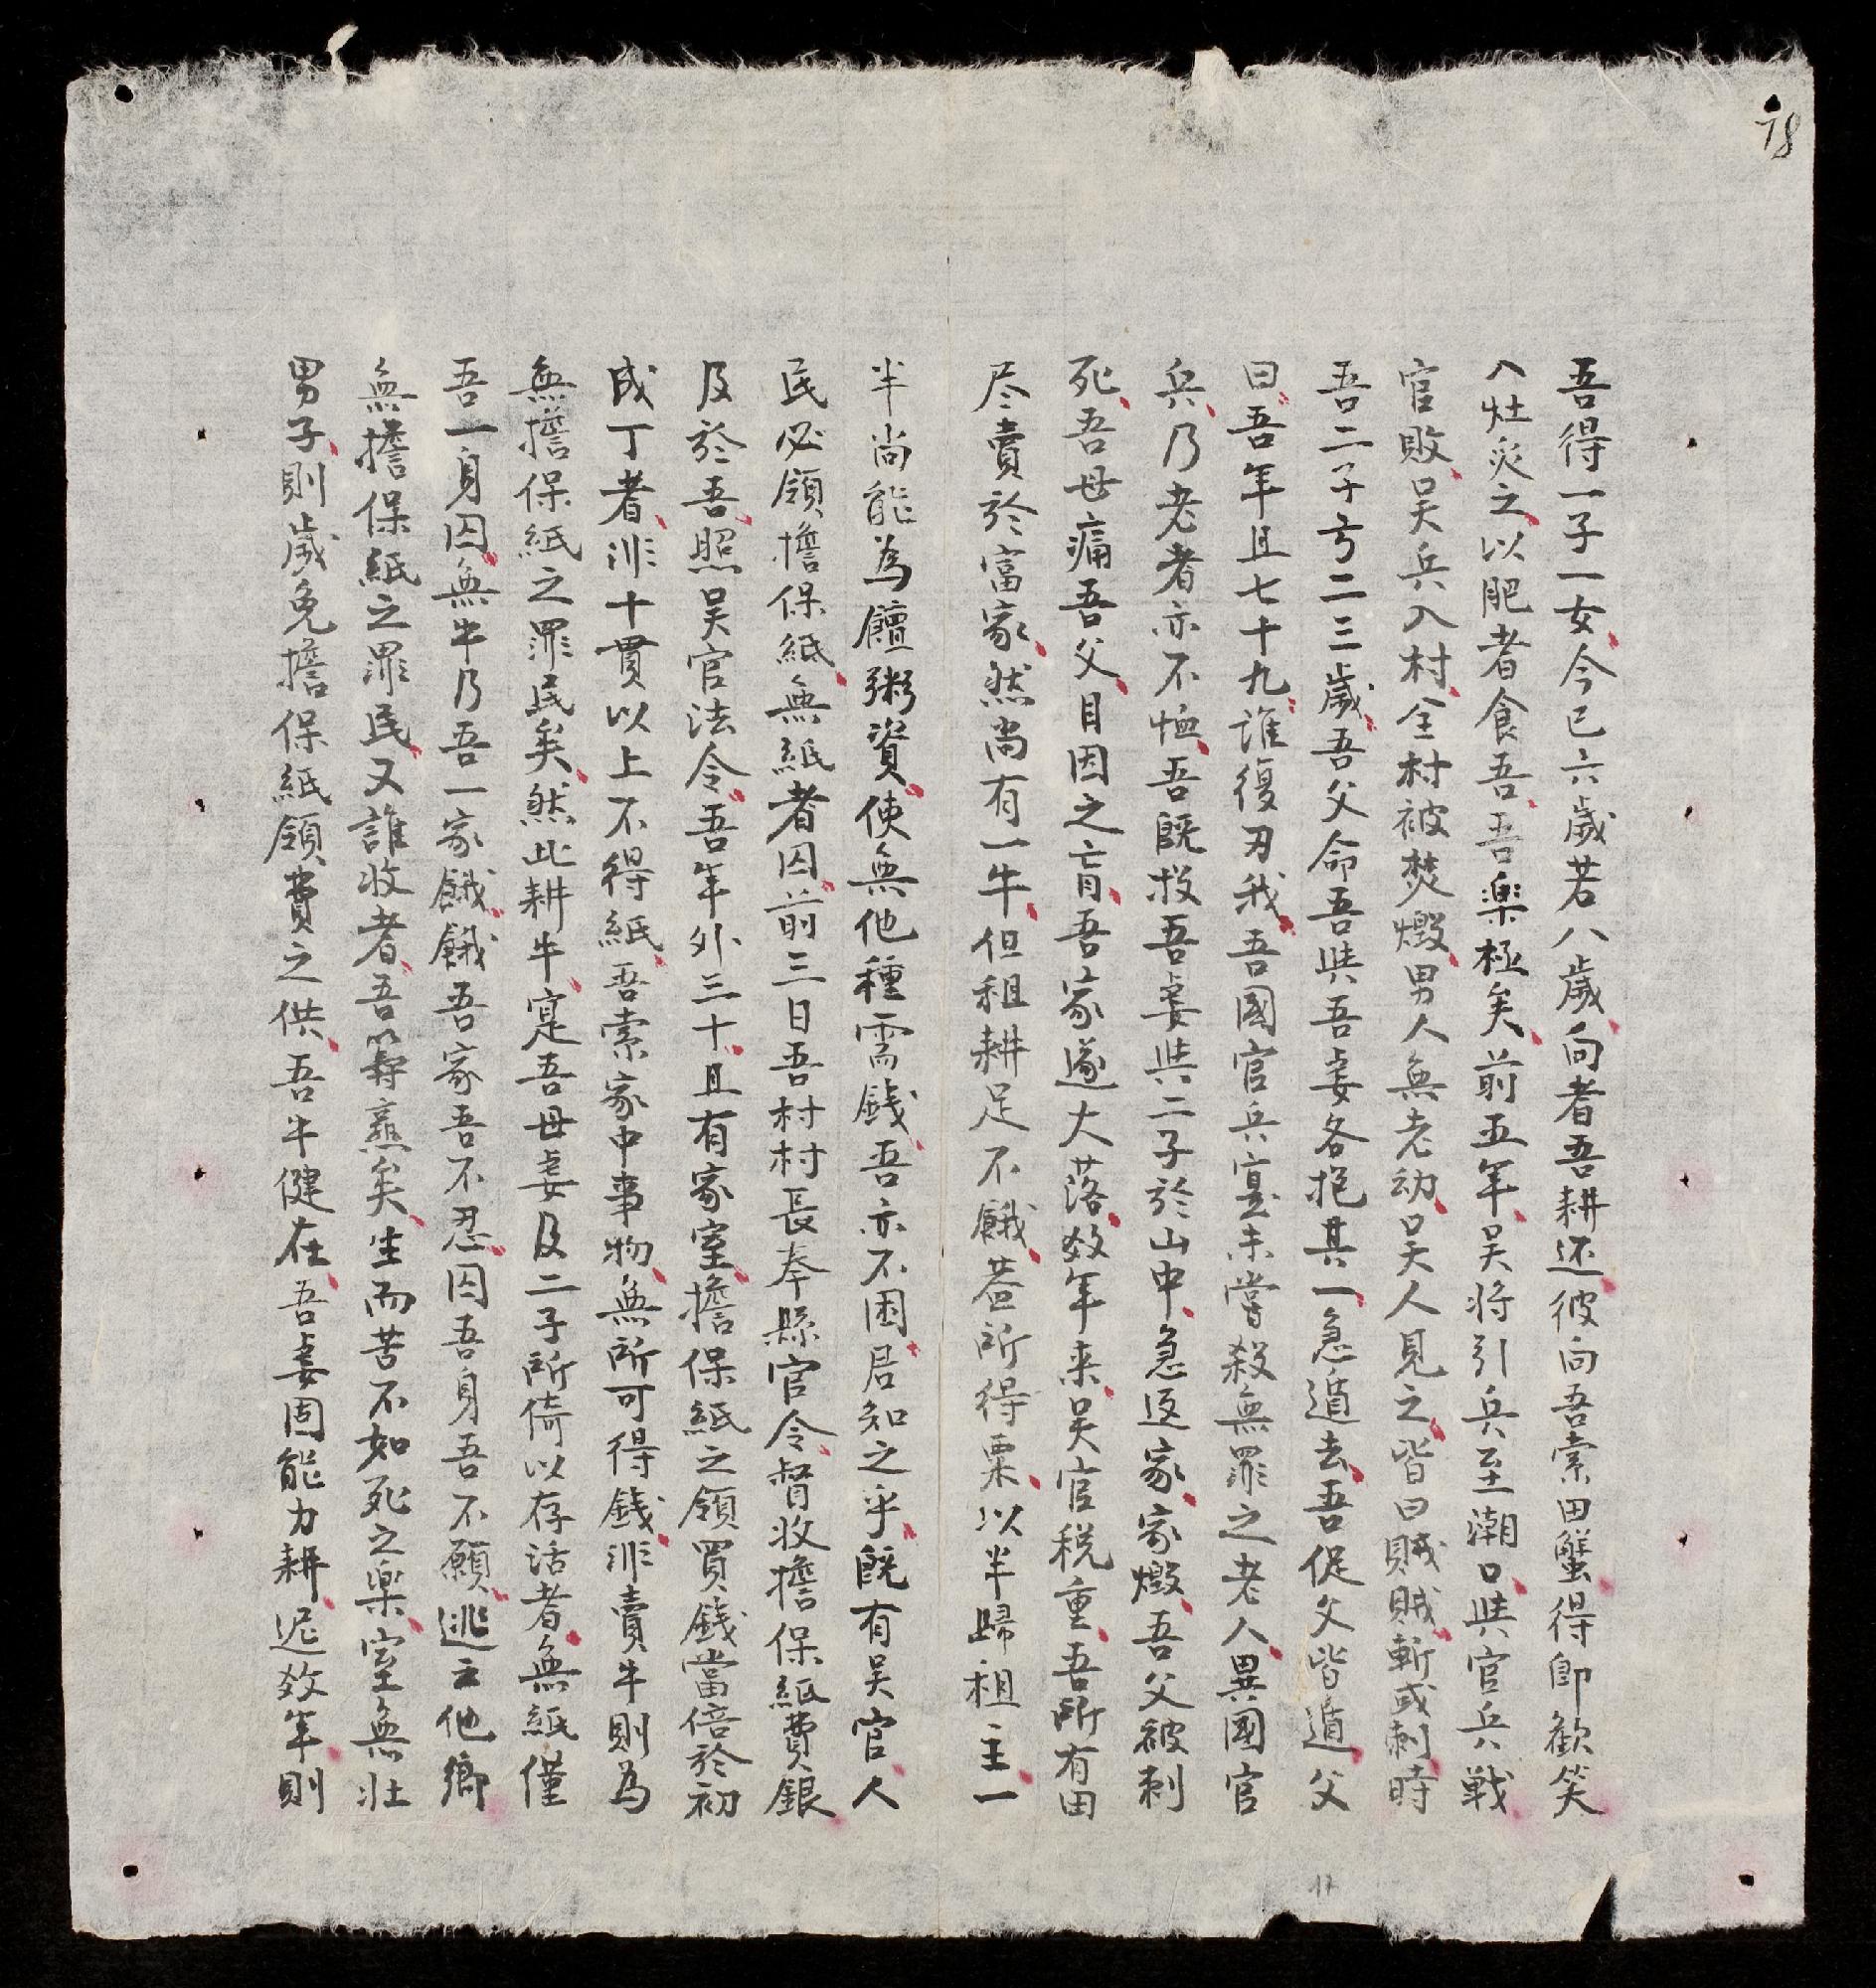 78
吾得一子一女今已六歲若八歲向者吾耕还彼向吾索田蟹得即歡笑
入灶炙之以肥者食吾吾楽極矣前五年吴将引兵至潮口與官兵戦
官敗吴兵入村全村被焚燬男人無老幼吴人見之皆曰賊賊斬或刺時
吾二子方二三歲吾父命吾與吾妻各抱其一急遁去吾促父皆遁父
曰吾年且七十九誰復刃我吾國官兵寔未嘗殺無罪之老人異國官
兵乃老者亦不恤吾既投吾妻與二子於山中急返家家燬吾父被刺
死吾母痛吾父目因之盲吾家遂大落数年来吴官税重吾所有田
尽賣於富家然尚有一牛但租耕足不餓盖所得粟以半歸租主一
半尚能為饘粥資使無他種需錢吾亦不困君知之乎既有吴官人
民必領擔保紙無紙者囚前三日吾村村長奉縣官令督收擔保紙費銀
及於吾照吴官法令吾年外三十且有家室擔保紙之領買錢當倍於初
成丁者非十貫以上不得紙吾索家中事物無所可得錢非賣牛則為
無擔保紙之罪民矣然此耕牛寔吾母妻及二子所倚以存活者無紙僅
吾一身囚無牛乃吾一家餓餓吾家吾不忍囚吾身吾不願逃之他鄉
無擔保紙之罪民又誰收者吾算熟矣生而苦不如死之楽室無壮
男子則歲免擔保紙領費之供吾牛健在吾妻固能力耕遲数年則
17